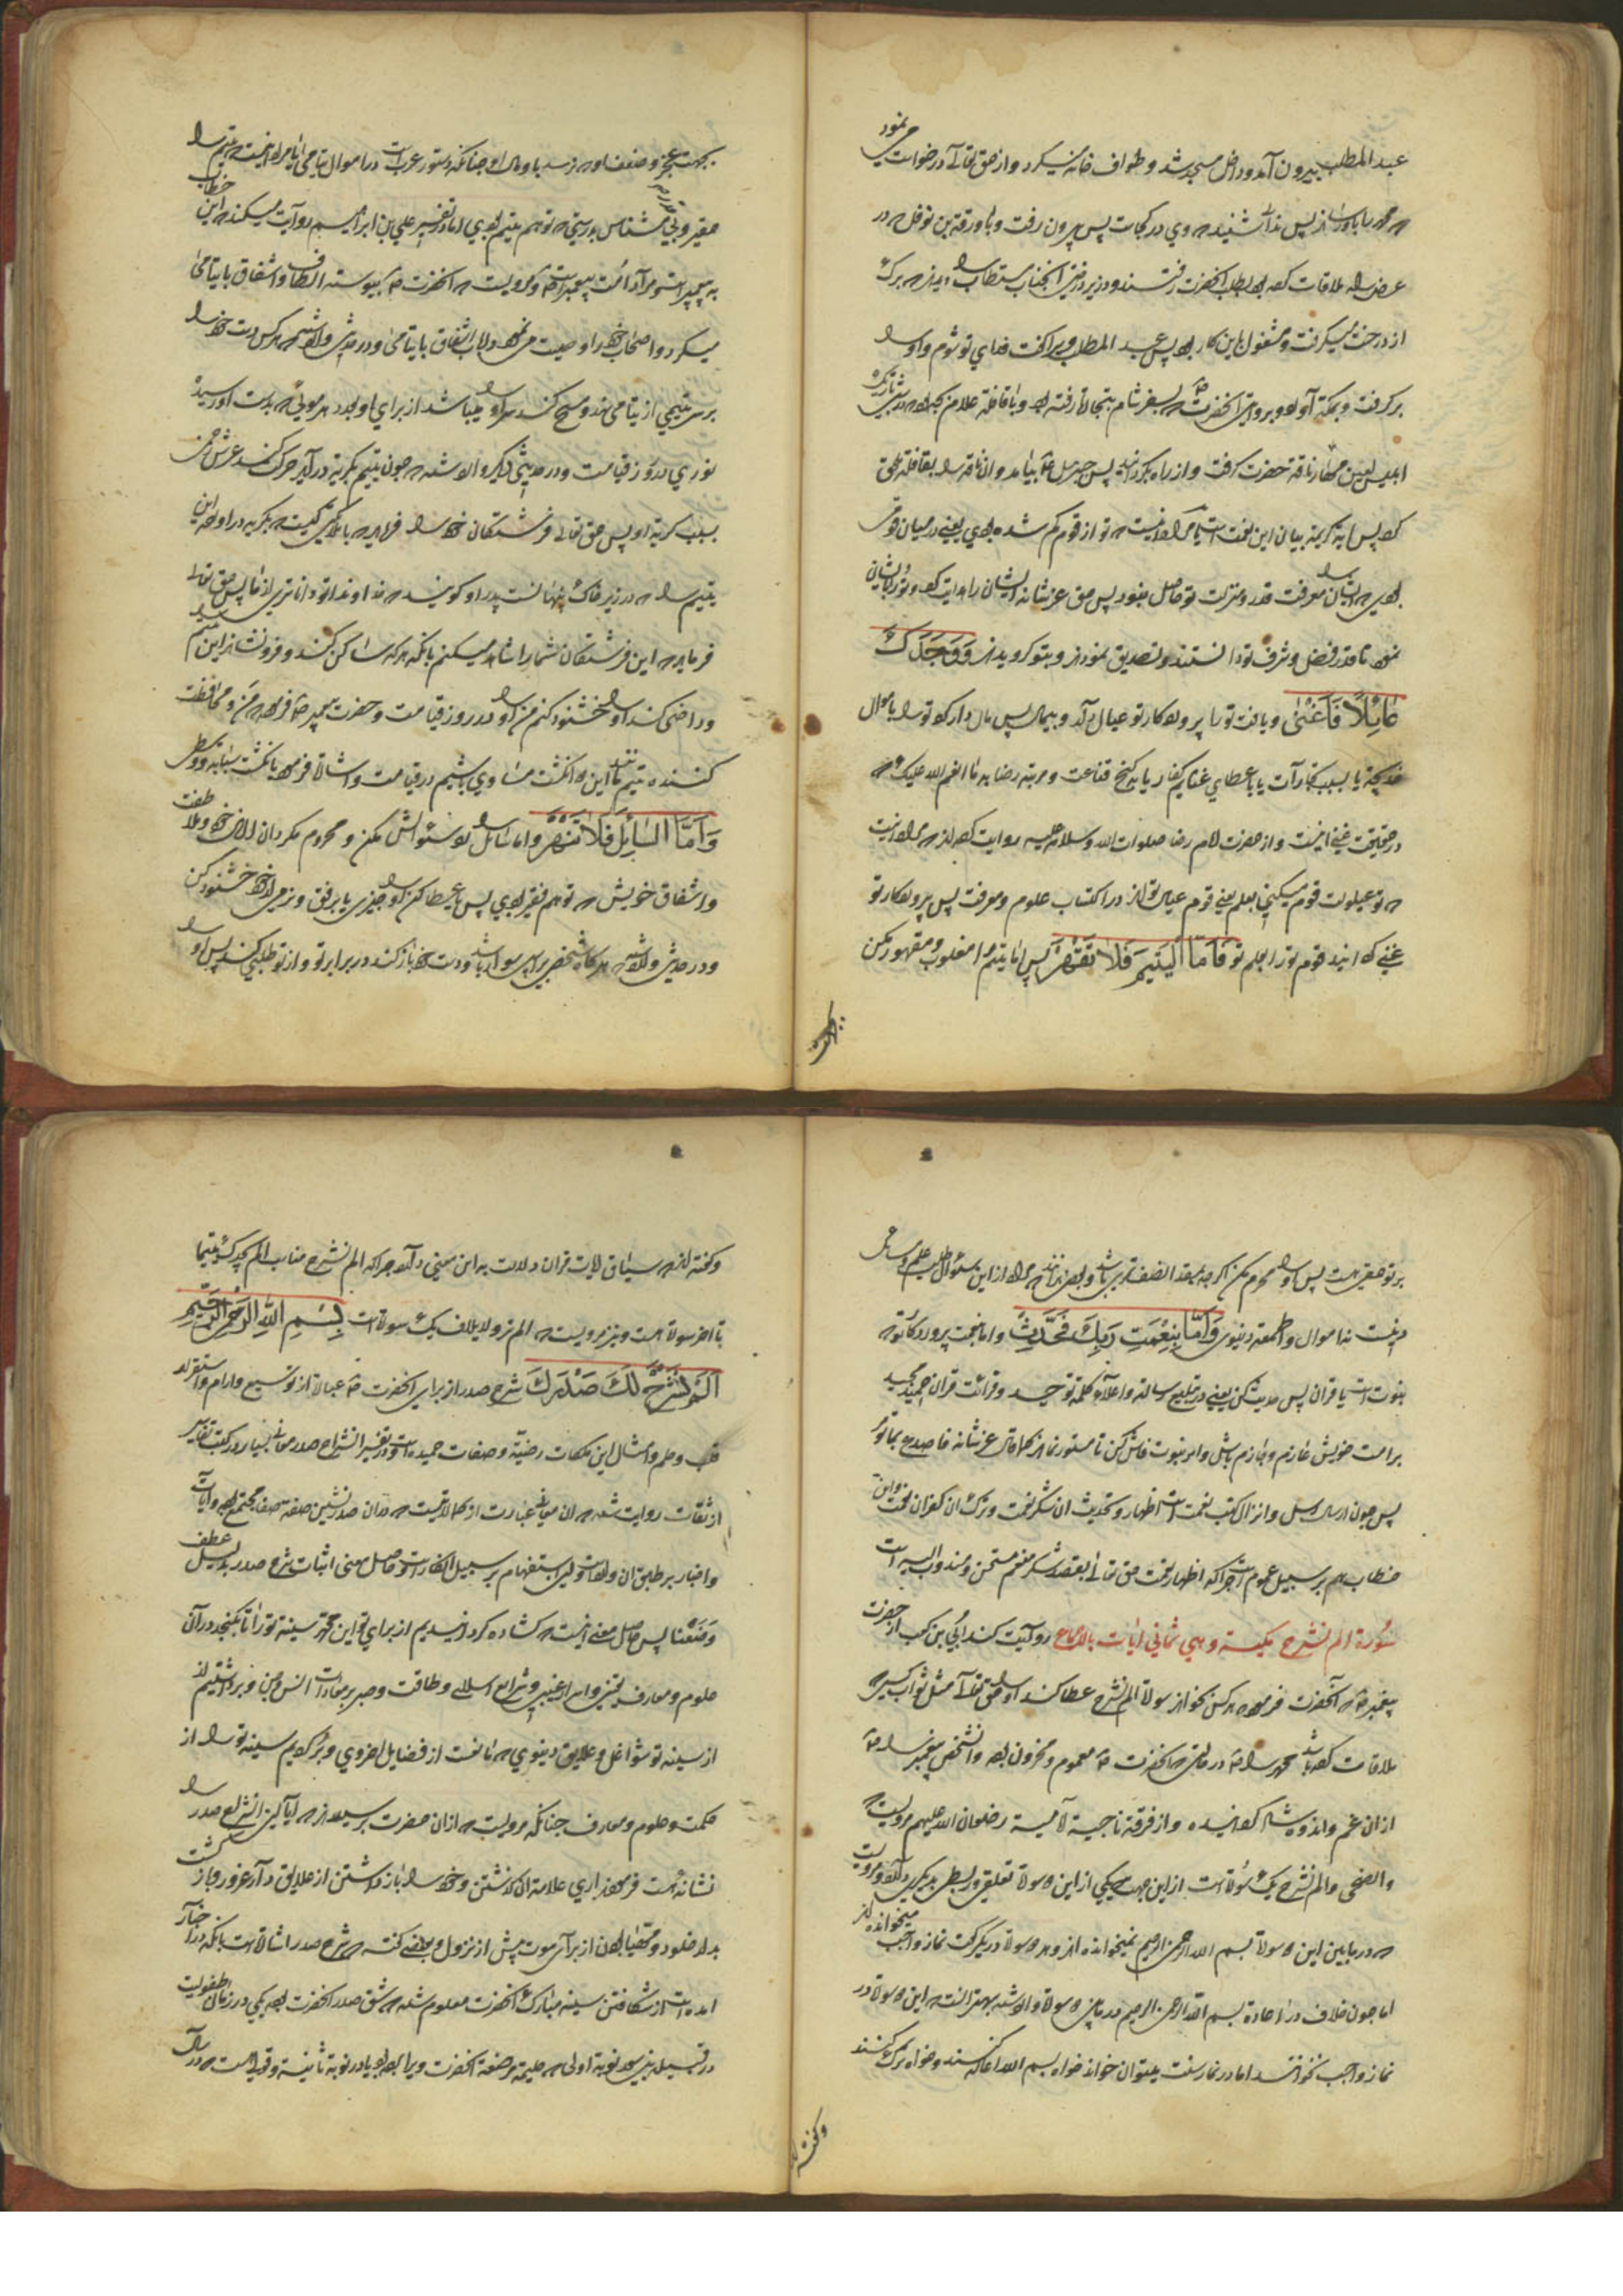 عبد المطلب بیرون آمد و داخل مسجد شد و طواف خانه میکرد و از حق تعالی درخواست می نمود
از پس ندا شنید که وی در کجاست پس بیرون رفت و با ورقة بن نوفل که در
عرض راه ملاقات کرده بود بطلب آنحضرت رفتند و در زیر درختی آنجناب مستطاب را دیدند که برک
از درخت میگرفت و مشغول باین کار بود پس عبد المطلب ویرا گفت فدای تو شوم و او را
برگرفت و بمکه آورد و بروایتی آنحضرت که بسفر شام بتجارت رفته بود و با قافله غلام خدیجه در شبی تاریک
ابلیس لعین مهار ناقه حضرت گرفت و از راه بگردانید پس جبرئیل بیامد و آن ناقه را بقافله ملحق
کرد پس آیه کریمه بیان این نعمت است یا مراد آنست که تو از قوم کم شده بودی یعنی در میان قومی
بودی که ایشان را معرفت قدر و منزلت تو حاصل نبود پس حق عز شانه ایشان را هدایت کرد
نمود تا قدر فضل و شرف تو دانستند و تصدیق نمودند و بتو گرویدند وَوَجَدَكَ
عَائِلًا فَأَغْنَىٰ و یافت تو را پروردگار تو عیال‌مند و بیمال پس مال‌دار کرد تو را باموال
خدیجه یا بسبب تجارات یا باعطای غنایم کفار یا بگنج قناعت و مرتبه رضا به ما انعم الله علیک که
در حقیقت غنی اینست و از حضرت امام رضا صلوات الله و سلامه علیه روایت کرده‌اند که مراد آنست
که تو عیلولت قوم میکنی بعلم یعنی قوم عیال تواند در اکتساب علوم و معرفت پس پروردگار تو
غنی گردانید قوم تو را بعلم تو فَأَمَّا الْيَتِيمَ فَلَا تَقْهَرْ پس اما یتیم را مغلوب و مقهور مکن
بجهت
بجهت عجز و ضعف او چنانکه دستور عرب است در اموال یتامی یا مراد اینست که یتیم را
حقیر و بی مقدار مشناس که تو هم یتیم بودی اما در تفسیر علی بن ابراهیم روایت میکند که این خطاب
به پیغمبر است و مراد امت پیغمبر است و مرویست که آنحضرت پیوسته الطاف و اشفاق با یتامی
میکرد و اصحاب خود را وصیت می‌نمود در باب اشفاق با یتامی و در حدیثی وارد شده که هر کس دست خود را
بر سر یتیمی از یتامی نهد و مسح کند سر او را میباشد از برای او بعدد هر موئی که بدست او رسیده
نوری در روز قیامت و در حدیثی دیگر وارد شده که چون یتیم بگریه در آید حرکت کند عرش رحمن
بسبب گریه او پس حق تعالی فرشتگان خود را فرماید که یا ملائکتی کیست که بگریه در آورده این
یتیم را که در زیر خاک پنهانست پدر او گویند که خداوندا تو داناتری از ما پس حق تعالی
فرماید که این فرشتگان شما را شاهد میگیرم بانکه هر که ساکن کند و فرو نشاند این یتیم را
و راضی کند او را خشنود کنم من او را در روز قیامت و حضرت پیغمبر فرمود که من و محافظت
کننده یتیم مانند این دو انگشت مساوی باشیم در قیامت و اشاره فرمود بانگشت سبابه و وسطی
وَأَمَّا السَّائِلَ فَلَا تَنْهَرْ و اما سائل را رد سئوالش مکن و محروم مگردان از الطاف خود
و اشفاق خویش که تو هم فقیر بودی پس یا عطا کن او را چیزی یا برفق و نرمی از خود خشنود کن
و در حدیثی وارد شده که هر گاه شخصی بر اسپی سوار باشد و دست خود باز کند در برابر تو و از تو طلبی کند پس او را
بر تو حقی هست پس او را محروم مکن اگر چه بقدر نصف تمری باشد و بعضی برآنند که مراد از این سئوال طلب علم و مسائل
دینست نه اموال و اطعمه دنیوی وَأَمَّا بِنِعْمَتِ رَبِّكَ فَحَدِّثْ و اما بنعمت پروردگار تو که
نبوت است یا قرآن پس حدیث کن یعنی در تبلیغ رسالة و اعلاء کلمه توحید و قرائت قرآن مجید
بر امت خویش عازم و جازم باش و امر نبوت فاش کن تا مستور نماند کما قال عز شانه فاصدع بما تؤمر
پس چون ارسال رسل و انزال کتب نعمت است اظهار و تحدیث آن شکر نعمت و ترک آن کفران نعمت و این
خطاب هم بر سبیل عموم است چرا که اظهار نعمت حق تعالی بقصد شکر منعم مستحسن و مندوب الیه است
سُورة الم نشرح مکیة و هي ثماني آیات بالاجماع روآیت کند ابی بن کعب از حضرت
پیغمبر که آنحضرت فرمود که هر کس بخواند سورة الم نشرح عطا کند او را حق تعالی مثل ثواب کسی که
ملاقات کرده باشد محمد را در حالتی که آنحضرت مغموم و محزون بود و آنشخص پیغمبر را
از آن غم و اندوه شاد گردانیده و از فرقه ناجیه امامیه رضوان الله علیهم مرویست که
والضحی و الم نشرح یک سوره است از این جهت که یکی از این دو سوره تعلق و ربطی بدیگری دارد و مرویست
که در مابین این دو سوره بسم الله الرحمن الرحیم نمیخوانده‌اند و هر دو سوره در یک رکعت نماز واجب میخوانده‌اند
اما چون خلاف در اعاده بسم الله الرحمن الرحیم در میان دو سوره وارد شده بهتر آنست که این دو سوره در
نماز واجب نخوانند اما در نماز سنت میتوان خواند خواه بسم الله اعاده کنند و خواه ترک کنند
و گفته‌اند
و گفته‌اند که سیاق آیات قرآن دلالت به این معنی دارد چرا که الم نشرح مناسب الم یجدک یتیما
تا آخر سوره است و نیز مرویست که الم تر و لایلاف یک سوره است بِسْمِ اللَّهِ الرَّحْمَٰنِ الرَّحِيمِ
أَلَمْ نَشْرَحْ لَكَ صَدْرَكَ شرح صدر از برای آنحضرت عبارة از توسیع و آرام و استقرار
قلب و حلم و امثال این ملکات رضیّة و صفات حمیده است و در تفسیر انشراح صدر معانی بسیار در کتب تفاسیر
از ثقات روایت شده که آن معانی عبارت از کمالاتیست که در آن صدرنشین صفه صفا مجتمع بود و آیات
و اخبار بر طبق آن وارد است و این استفهام بر سبیل انکار است و حاصل معنی اثبات شرح صدر بدلیل عطف
وَضَعْنَا پس حاصل معنی اینست که گشاده گردانیدیم از برای تو این محمد سینه تو را تا بگنجد در آن
علوم و معارف یقینی و اسرار غیبی و شرایع اسلام و طاقت و صبر بر معادات انس و جن و برداشتیم
از سینه تو شواغل و علایق دنیوی که مانعست از فضایل اخروی و پُر کردیم سینه تو را از
حکمت و علوم و معارف چنانکه مرویست که از آن حضرت پرسیدند که آیا این انشراح صدر را
نشانه هست فرمودند آری علامة آن گذشتن و خود را باز داشتن از علایق دار غرور و باز گشت
بدار خلود و مهیا بودن از برای موت پیش از نزول و بعضی گفته که شرح صدر اشاره است بانکه در اخبار
آمده است از شکافتن سینه مبارک آنحضرت معلوم شده که شق صدر آنحضرت بود یکی در زمان طفولیت
در قبیله بنی سعد نوبة اولی که حلیمه مرضعة آنحضرت ویرا